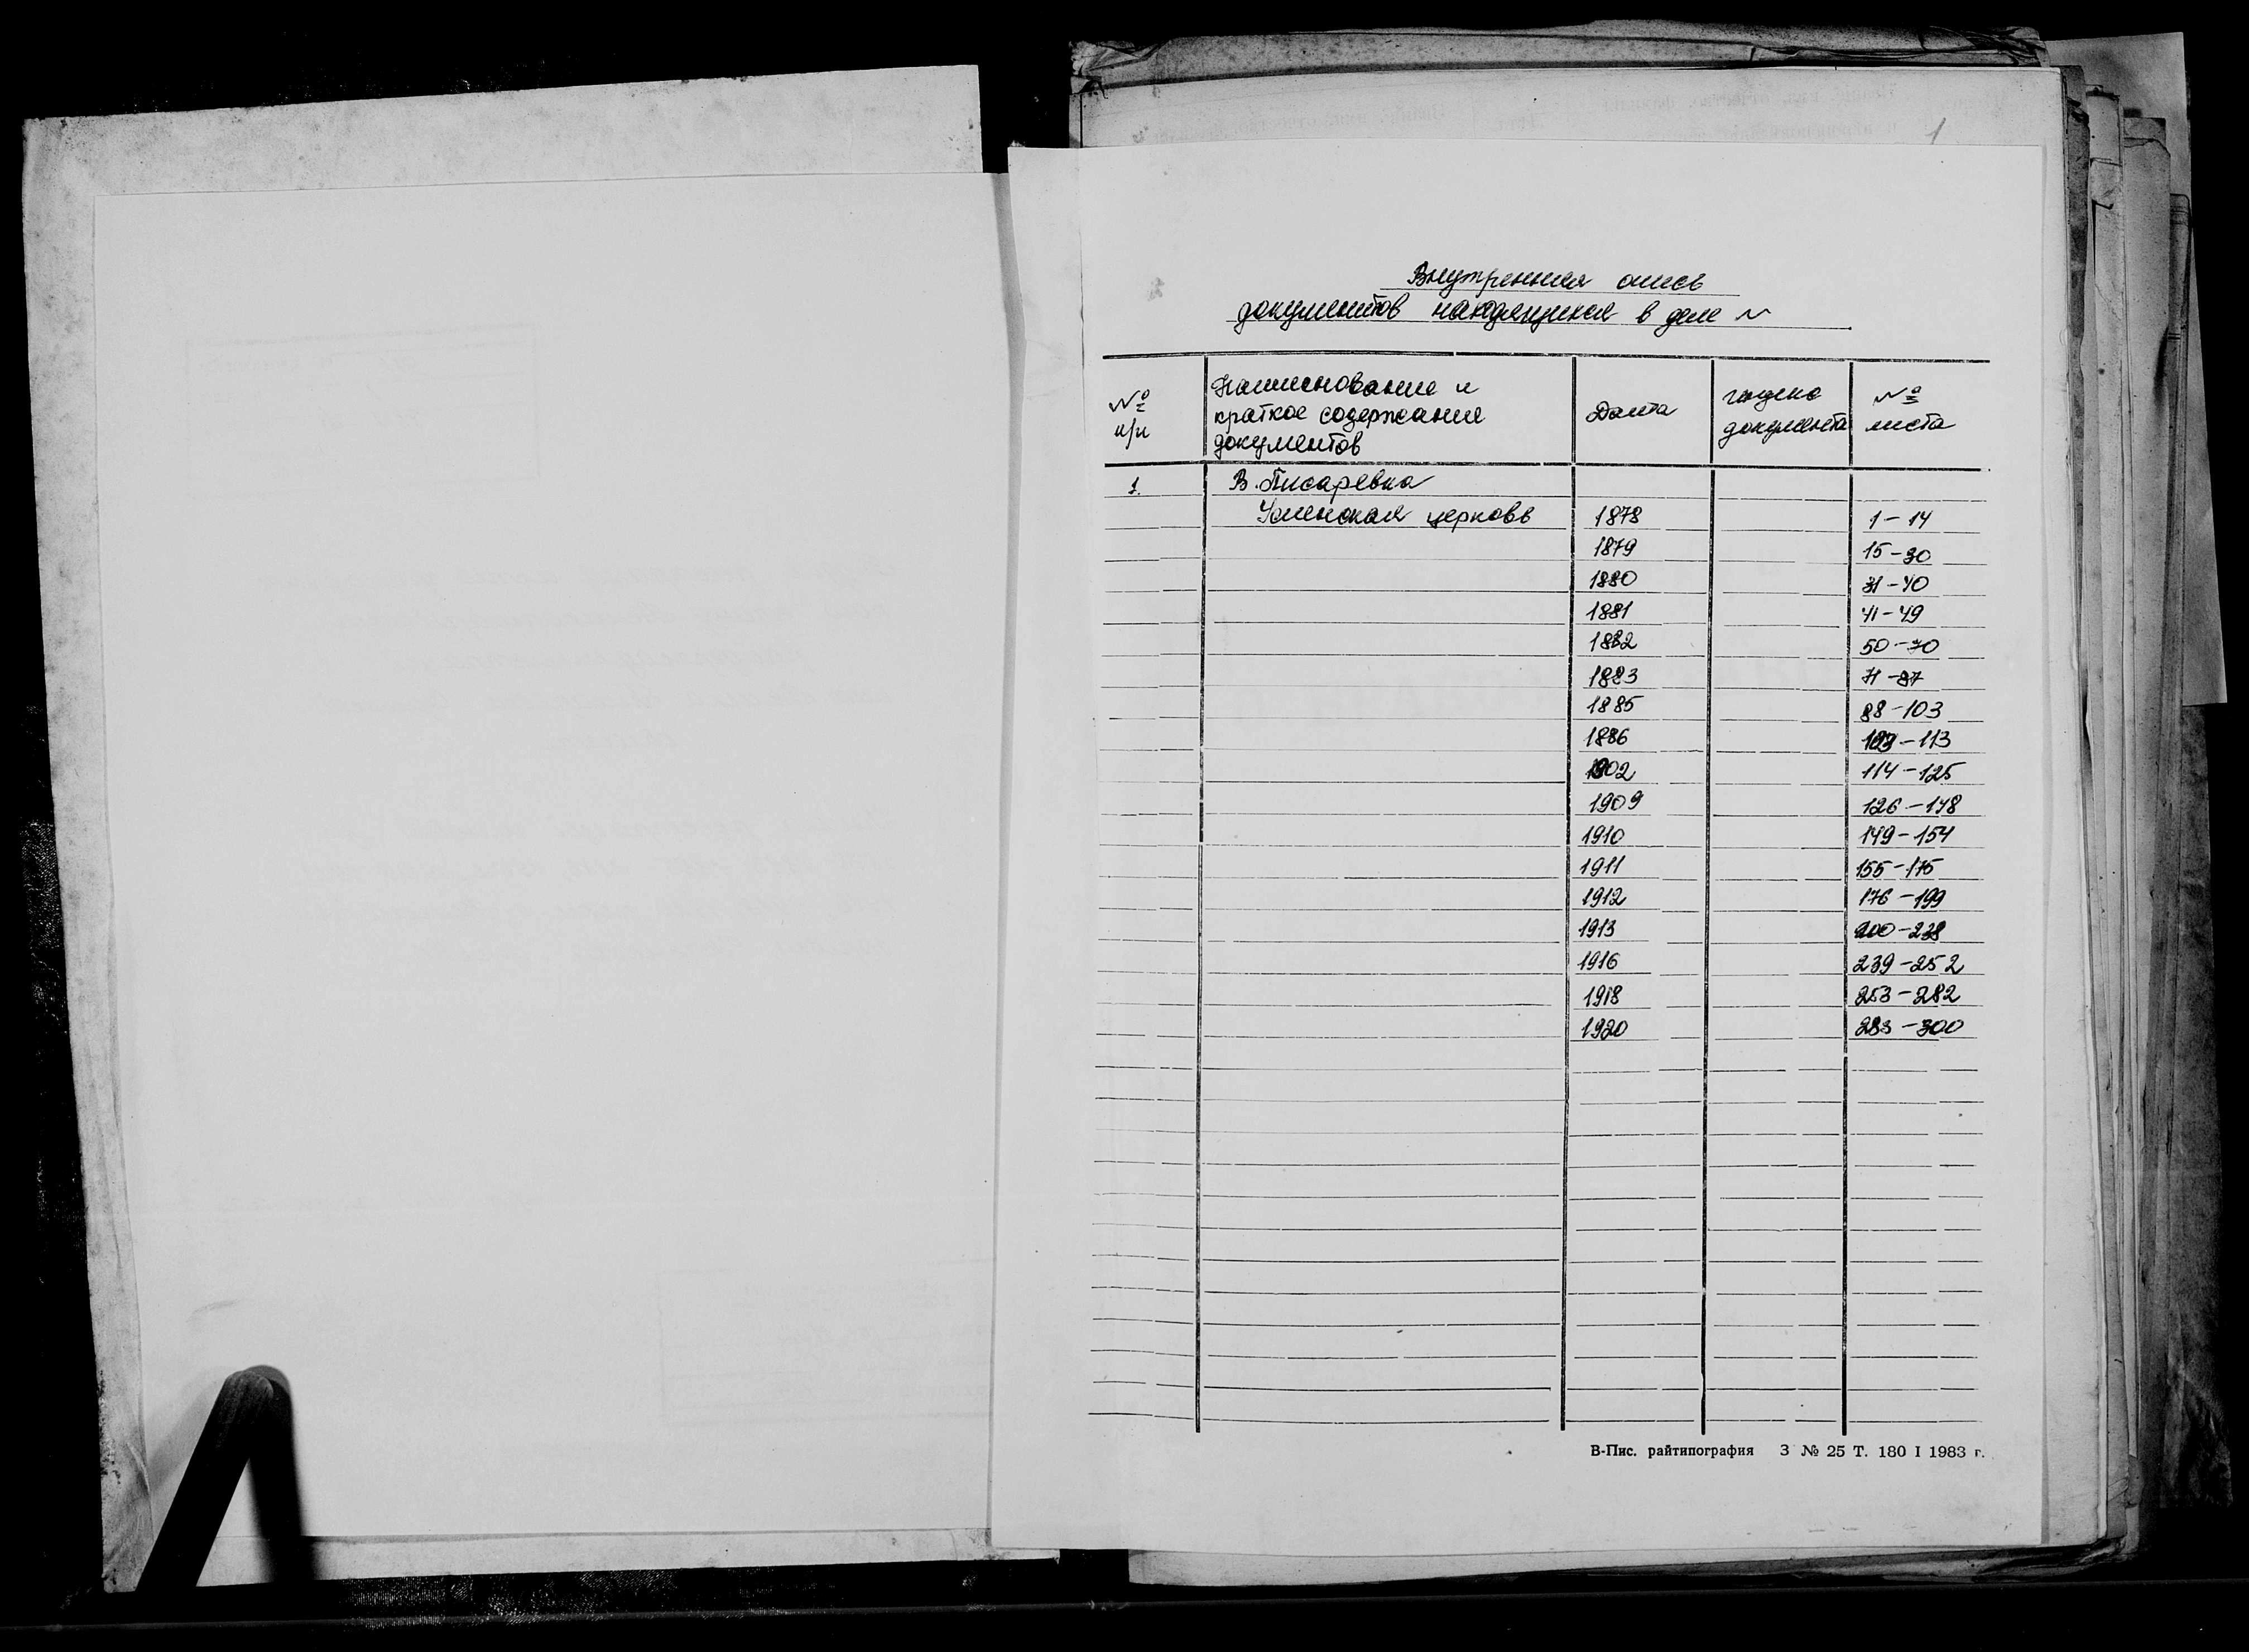 1
Внутренняя опись
документов находящихся в деле №
№ п/п
Наименование и
краткое содержание
документов
Дата
индекс
документа
№
листа
1. В. Писаревка
Успенская церковь 1878 1-14
1879 15-30
1880 31-40
1881 41-49
1882 50-70
1883 71-87
1885 88-103
1886 103-113
1902 114-125
1909 126-148
1910 149-154
1911 155-175
1912 176-199
1913 200-238
1916 239-252
1918 253-282
1920 283-300
В-Пис. райтипография З № 25 Т. 180 I 1983 г.